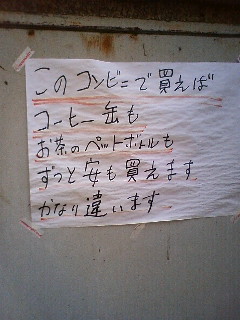 このコンビニで買えば
コーヒー缶も
お茶のペットボトルも
ずっと安も買えます
かなり違います